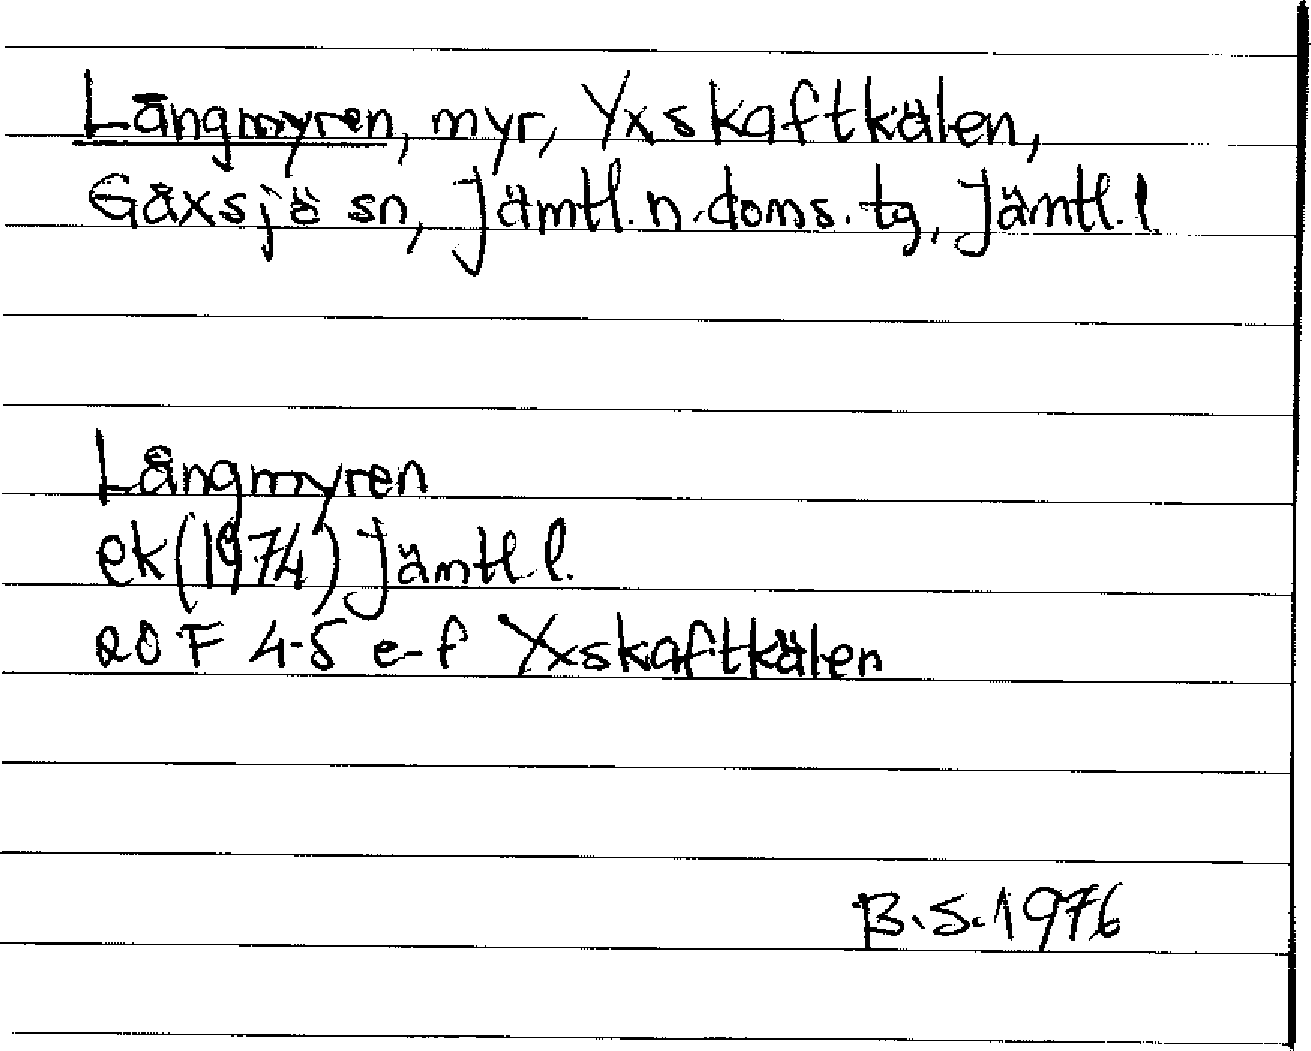 Långmyren, myr, Yxskaftkälen,
Gåxsjö sn, Jämtl. n. doms. tg, Jämtl. l
Långmyren
ek (1974) Jämtl. l.
20 F 4-5 e-f Yxskaftkälen
B.S. 1976